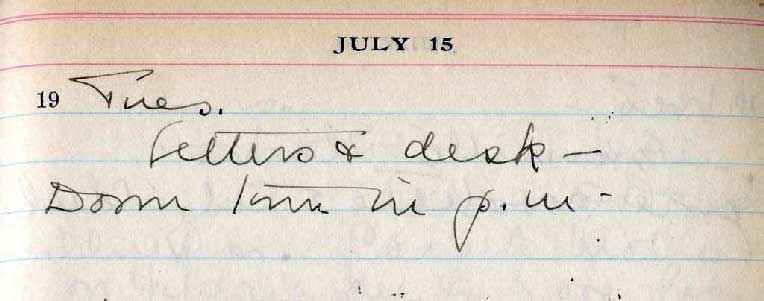 JULY 15
19 Tues.
Letters & desk —
Down town in p.m. -